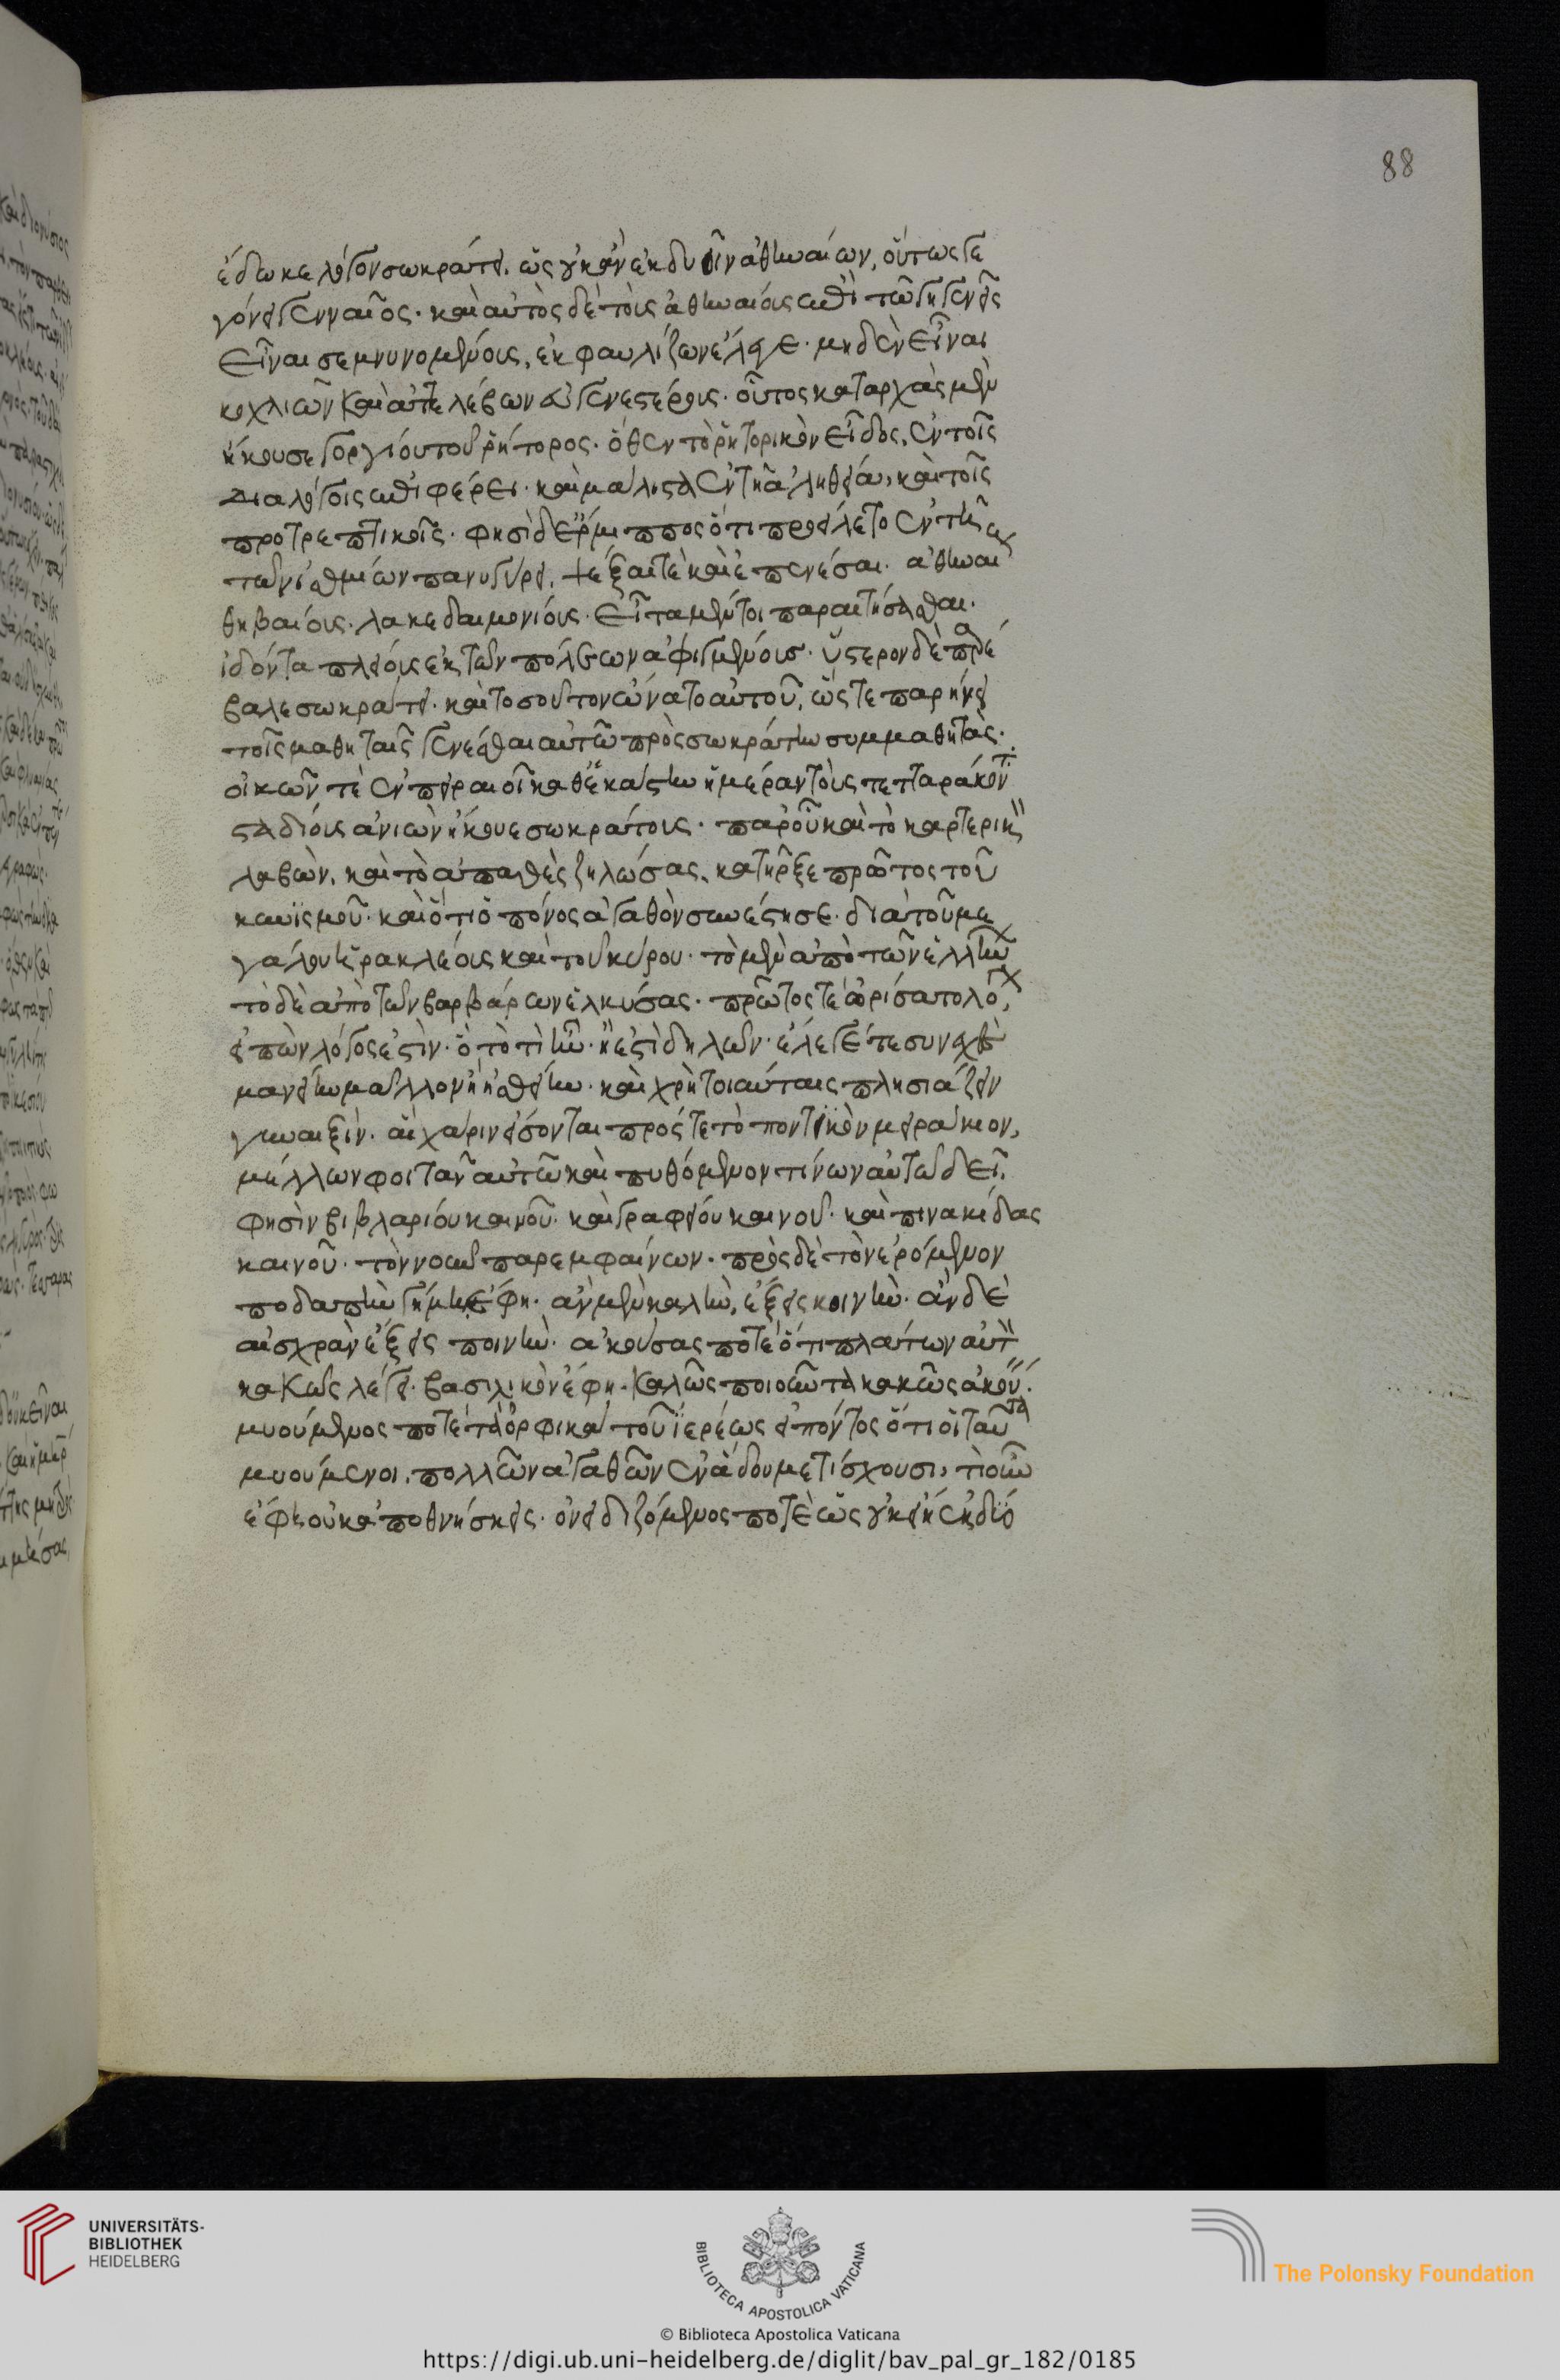 88
ἔδωκε λέγειν σωκράτει. ὡς οὐκ ἂν ἐκ δυεῖν ἀθηναίων, οὕτως γε
γόνει γενναῖος. καὶ αὐτὸς δὲ τοῖς ἀθηναίοις ἐπὶ τῶ γηγενεῖς
εἶναι σεμνυνομένοις, ἐκφαυλίζων ἔλεγε. μηδὲν εἶναι
κοχλιῶν καὶ ἀττελέβων εὐγενεστέρους. οὗτος καταρχὰς μὲν
ἤκουσε γοργίου τοῦ ῥήτορος. ὅθεν τὸ ῥητορικὸν εἶδος, ἐν τοῖς
διαλόγοις ἐπιφέρει. καὶ μάλιστα ἐν τῆ ἀληθεία, καὶ τοῖς
προτρεπτικοῖς. φησὶ δ' ἕρμιππος ὅτι προείλετο ἐν τῆ
τῶν ἰσθμίων πανηγύρει. ψέξαι τὲ καὶ ἐπαινέσαι. ἀθηναί
θηβαίους. λακεδαιμονίους. εἶτα μέντοι παραιτήσασθαι.
ἰδόντα πλείους ἐκ τῶν πόλεων ἀφιγμένους. ὕστερον δὲ παρέ
βαλε σωκράτει. καὶ τοσοῦτον ὤνατο αὐτοῦ, ὥστε παρήνει
τοῖς μαθηταῖς γενέσθαι αὐτῶ πρὸς σωκράτην συμμαθητάς.
οἰκῶν τὲ ἐν πειραιεῖ καθἑκάστην ἡμέραν τοὺς τετταράκοντ
σταδίους ἀνιὼν ἤκουε σωκράτους. παροῦ καὶ τὸ καρτερικ
λαβὼν, καὶ τὸ ἀπαθὲς ζηλώσας, κατῆρξε πρῶτος τοῦ
κυνισμοῦ. καὶ ὅτι ὁ πόνος ἀγαθὸν συνέστησε. διὰ τοῦ με
γάλου ἡρακλέους καὶ τοῦ κύρου. τὸ μὲν ἀπὸ τῶν ἑλλήνων
τὸ δὲ ἀπὸ τῶν βαρβάρων ἑλκύσας. πρῶτος τὲ ὡρίσατο λό,
εἰπὼν λόγος ἐστὶν. ὁ τὸ τί ἦν. ἢ ἔστι δηλῶν. ἔλεγέ τε συνεχὲς
μανείην μᾶλλον ἢ ἡσθείην. καὶ χρὴ τοιαύταις πλησιάζειν
γυναιξὶν. αἳ χάριν εἴσονται πρός τε τὸ ποντικὸν μειράκιον,
μέλλων φοιτᾶν αὐτῶ καὶ πυθόμενον τίνων αὐτῶ δεῖ.
φησὶν βιβλαρίου καινοῦ. καὶ γραφείου καινοῦ. καὶ πινακίδας
καινοῦ. τὸν νοῦν παρεμφαίνων. πρὸς δὲ τὸν ἐρόμενον
ποδαπὴν γήμη ἔφη. ἂν μὲν καλὴν, ἕξεις κοινὴν. ἂν δὲ
αἰσχρὰν ἕξεις ποινὴν. ἀκούσας ποτὲ ὅτι πλάτων αὐτ
κακῶς λέγει. βασιλικὸν ἔφη. καλῶς ποιοῦντα κακῶς ἀκού.
μυούμενος ποτὲ τὰ ὀρφικὰ τοῦ ἱερέως εἰπόντος ὅτι οἱ ταῦτα
μυούμενοι, πολλῶν ἀγαθῶν ἐν ἅδου μετίσχουσι, τί οὖν
ἔφη οὐκ ἀποθνήσκεις. ὀνειδιζόμενος ποτὲ ὡς οὐκ εἴη ἐκ δύο
UNIVERSITÄTS-
BIBLIOTHEK
HEIDELBERG
BIBLIOTECA APOSTOLICA VATICANA
The Polonsky Foundation
© Biblioteca Apostolica Vaticana
https://digi.ub.uni-heidelberg.de/diglit/bav_pal_gr_182/0185